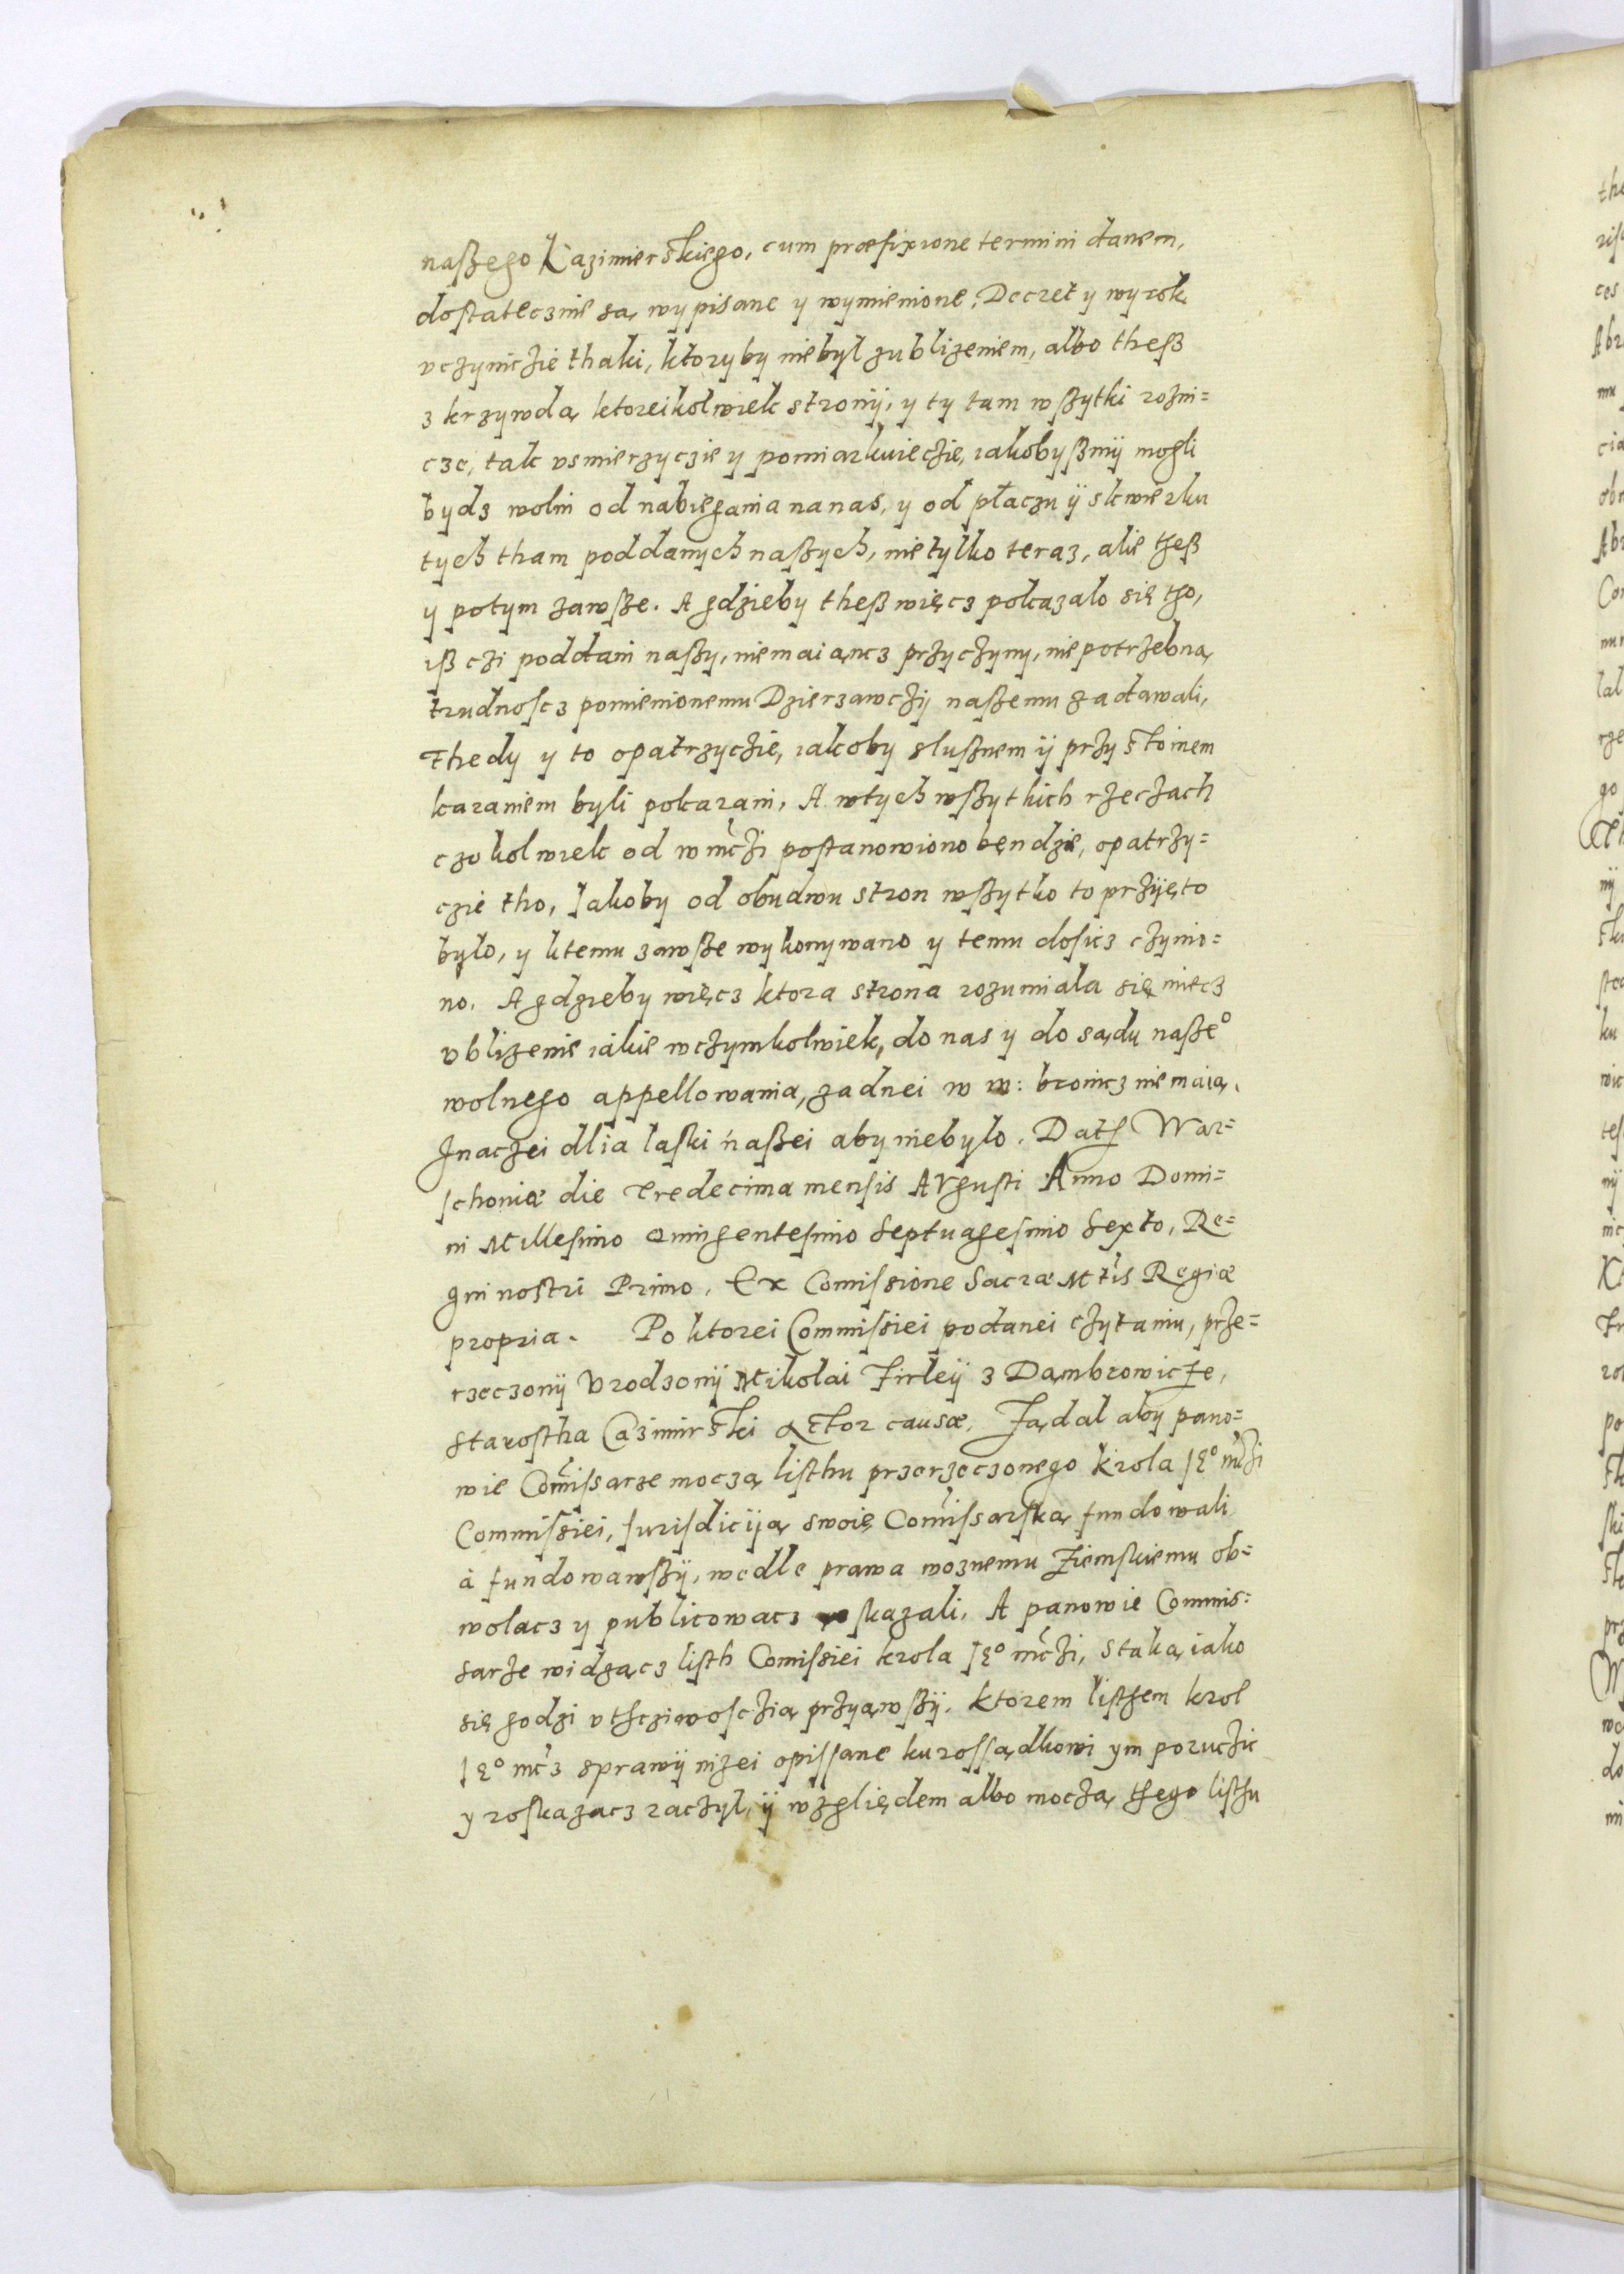 naßego Kazimierskiego, cum præfixione termini danem,
dostatecznie są wypisane y wymienione, Decret y wyrok
vczyniczie thaki, ktoryby niebyl z ublizeniem, albo theß
z krzywdą ktoreikolwiek stronij, y ty tam wszytki rozni=
cze, tak vsmierzyczie y pomiarkuieczie, iakobyßmij mogli
bydz wolni od nabiegania na nas, y od płaczu ij skwierku
tych tham poddanych naszych, nie tylko teraz, alie theß
y potym zawsze. A gdzieby theß więcz pokazalo się tho,
iß czi poddani naszy, niemaiąncz przyczyny, niepotrzebną
trudnoscz pomienionemu Dzierzawczij naszemu zadawali,
Thedy y to opatrzyczie, iakoby slusznem ij przystoinem
karaniem byli pokarani, A wtych wszytkich rzeczach
czokolwiek od w mczi postanowiono bęndzie, opatrzy=
czie tho, Jakoby od obudwu stron wszytko to przyięto
bylo, y ktemu zawsze wykonywano y temu dosicz czynio=
no. A gdzieby więcz ktora strona rozumiala się miecz
vblizenie iakie wczymkolwiek, do nas y do sądu nasze°
wolnego appellowania, zadnei w w: bronicz niemaią.
Jnaczei dlia laski naßei aby niebylo. Dat War=
schoniæ die tredecima mensis AVgusti Anno Domi=
ni Millesimo Quingentesimo Septuagesimo Sexto, Re=
gni nostri Primo. Ex Comissione Sacræ Mtis Regiæ
propria. Po ktorei Commissiei podanei czytaniu, prze=
rzeczonij Vrodzonij Mikolai Firleij z Dambrowicze,
Starostha Cazimirski Actor causæ, Ządal aby pano=
wie Comissarze moczą listhu przerzeczonego Krola Je° mczi
Commissiei, Jurisdiciją swoię Comissarską fundowali
a fundowawszij, wedle prawa woznemu Ziemskiemu ob=
wolacz y publicowacz skazali, A panowie Commis=
sarze widząncz listh Comissiei krola Je° mczi, s taką iako
się godzi vthcziwosczią przyiąwszij, ktorem listhem krol
Je° mcz sprawij nizei opissane ku rossądkowi ym poruczic
y roskazacz raczyl, ij wzgliędem albo moczą thego listhu